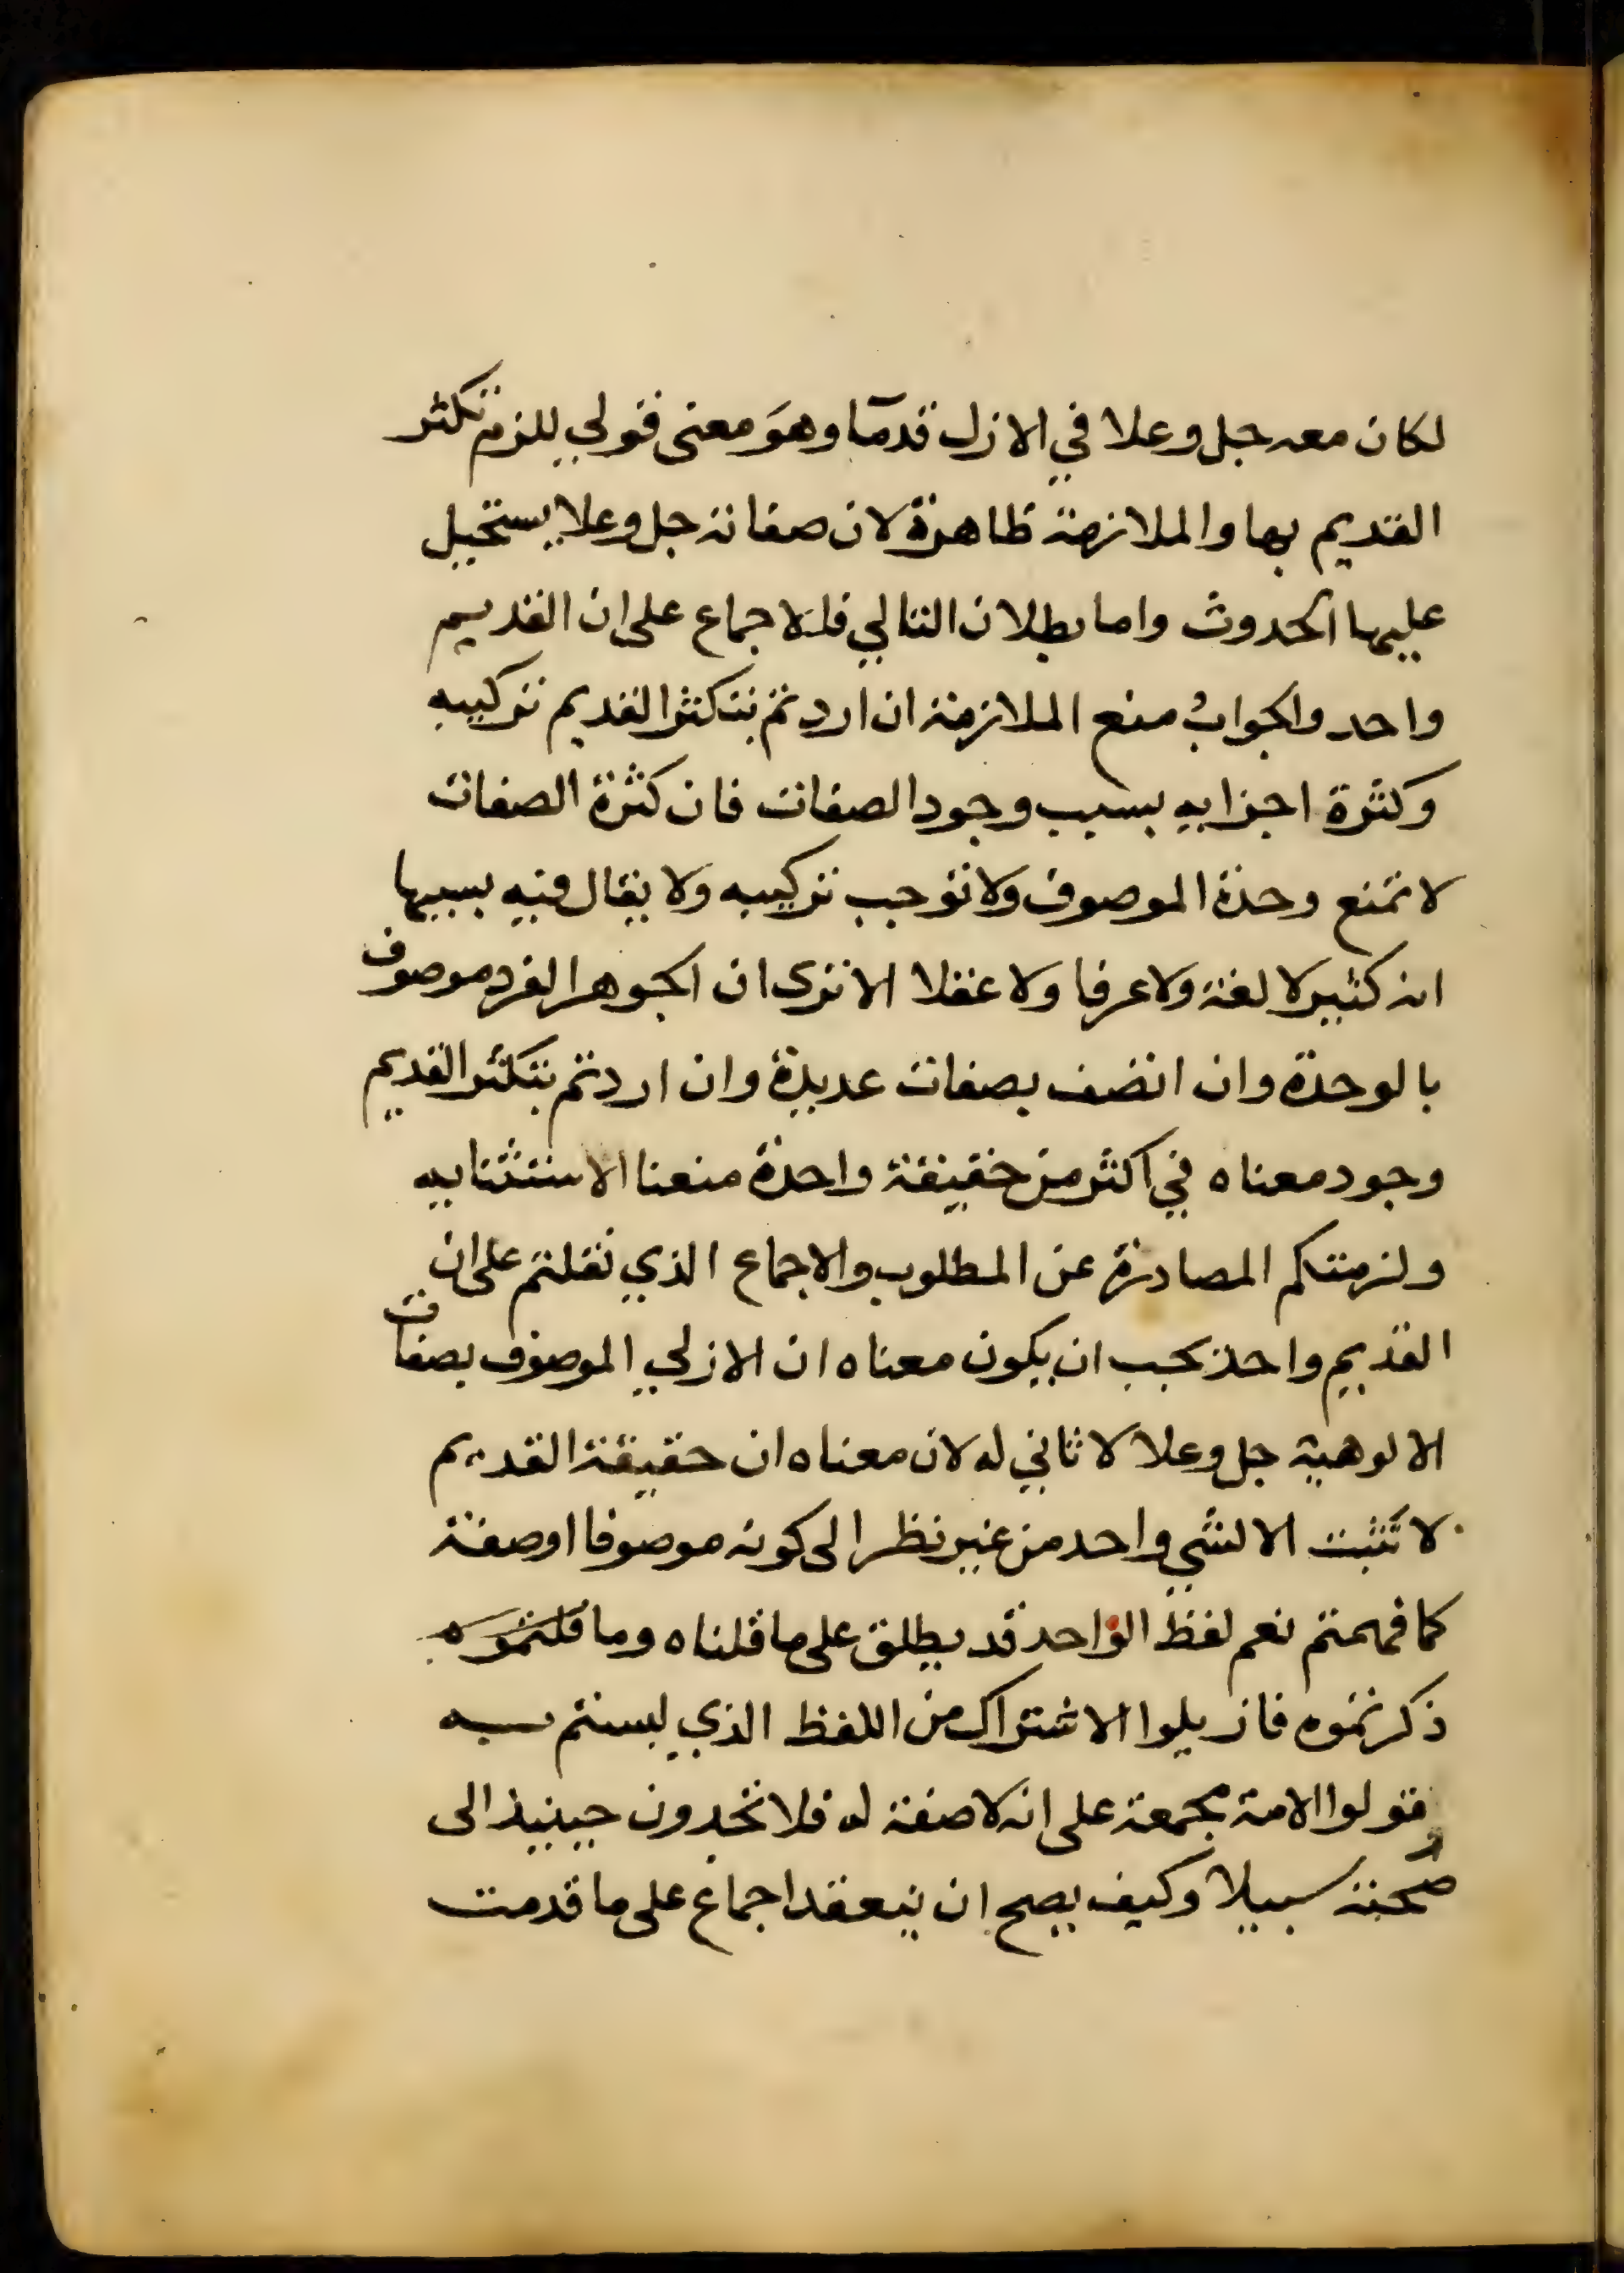 لكان معه جل وعلا في الازل قدما وهو معنى قولي للزم تكثر
القديم بها والملازمة ظاهرة لان صفاته جل وعلا يستحيل
عليها الحدوث واما بطلان التالي فللاجماع على ان القديم
واحد والجواب منع الملازمة ان اردتم بتكثر القديم تركيبه
وكثرة اجزايه بسبب وجود الصفات فان كثرة الصفات
لا تمنع وحدة الموصوف ولا توجب تركيبه ولا يقال فيه بسببها
انه كثير لا لغة ولا عرفا ولا عقلا الا ترى ان الجوهر الفرد موصوف
بالوحدة وان اتصف بصفات عديدة وان اردتم بتكثر القديم
وجود معناه في اكثر من حقيقة واحدة منعنا الاستثنايه
ولزمتكم المصادرة عن المطلوب والاجماع الذي نقلتم على ان
القديم واحد يجب ان يكون معناه ان الازلي الموصوف بصفات
الالوهية جل وعلا لا ثاني له لان معناه ان حقيقة القديم
لا تثبت الا لشي واحد من غير نظر الى كونه موصوفا او صفة
كما فهمتم نعم لفظ الواحد قد يطلق على ما قلناه وما قلتموه
ذكرتموه فازيلوا الاشتراك من اللفظ الذي لبستم به
وقولوا الامة مجمعة على انه لا صفة له فلا تجدون حينيذ الى
صحته سبيلا وكيف يصح ان ينعقد اجماع على ما قدمت